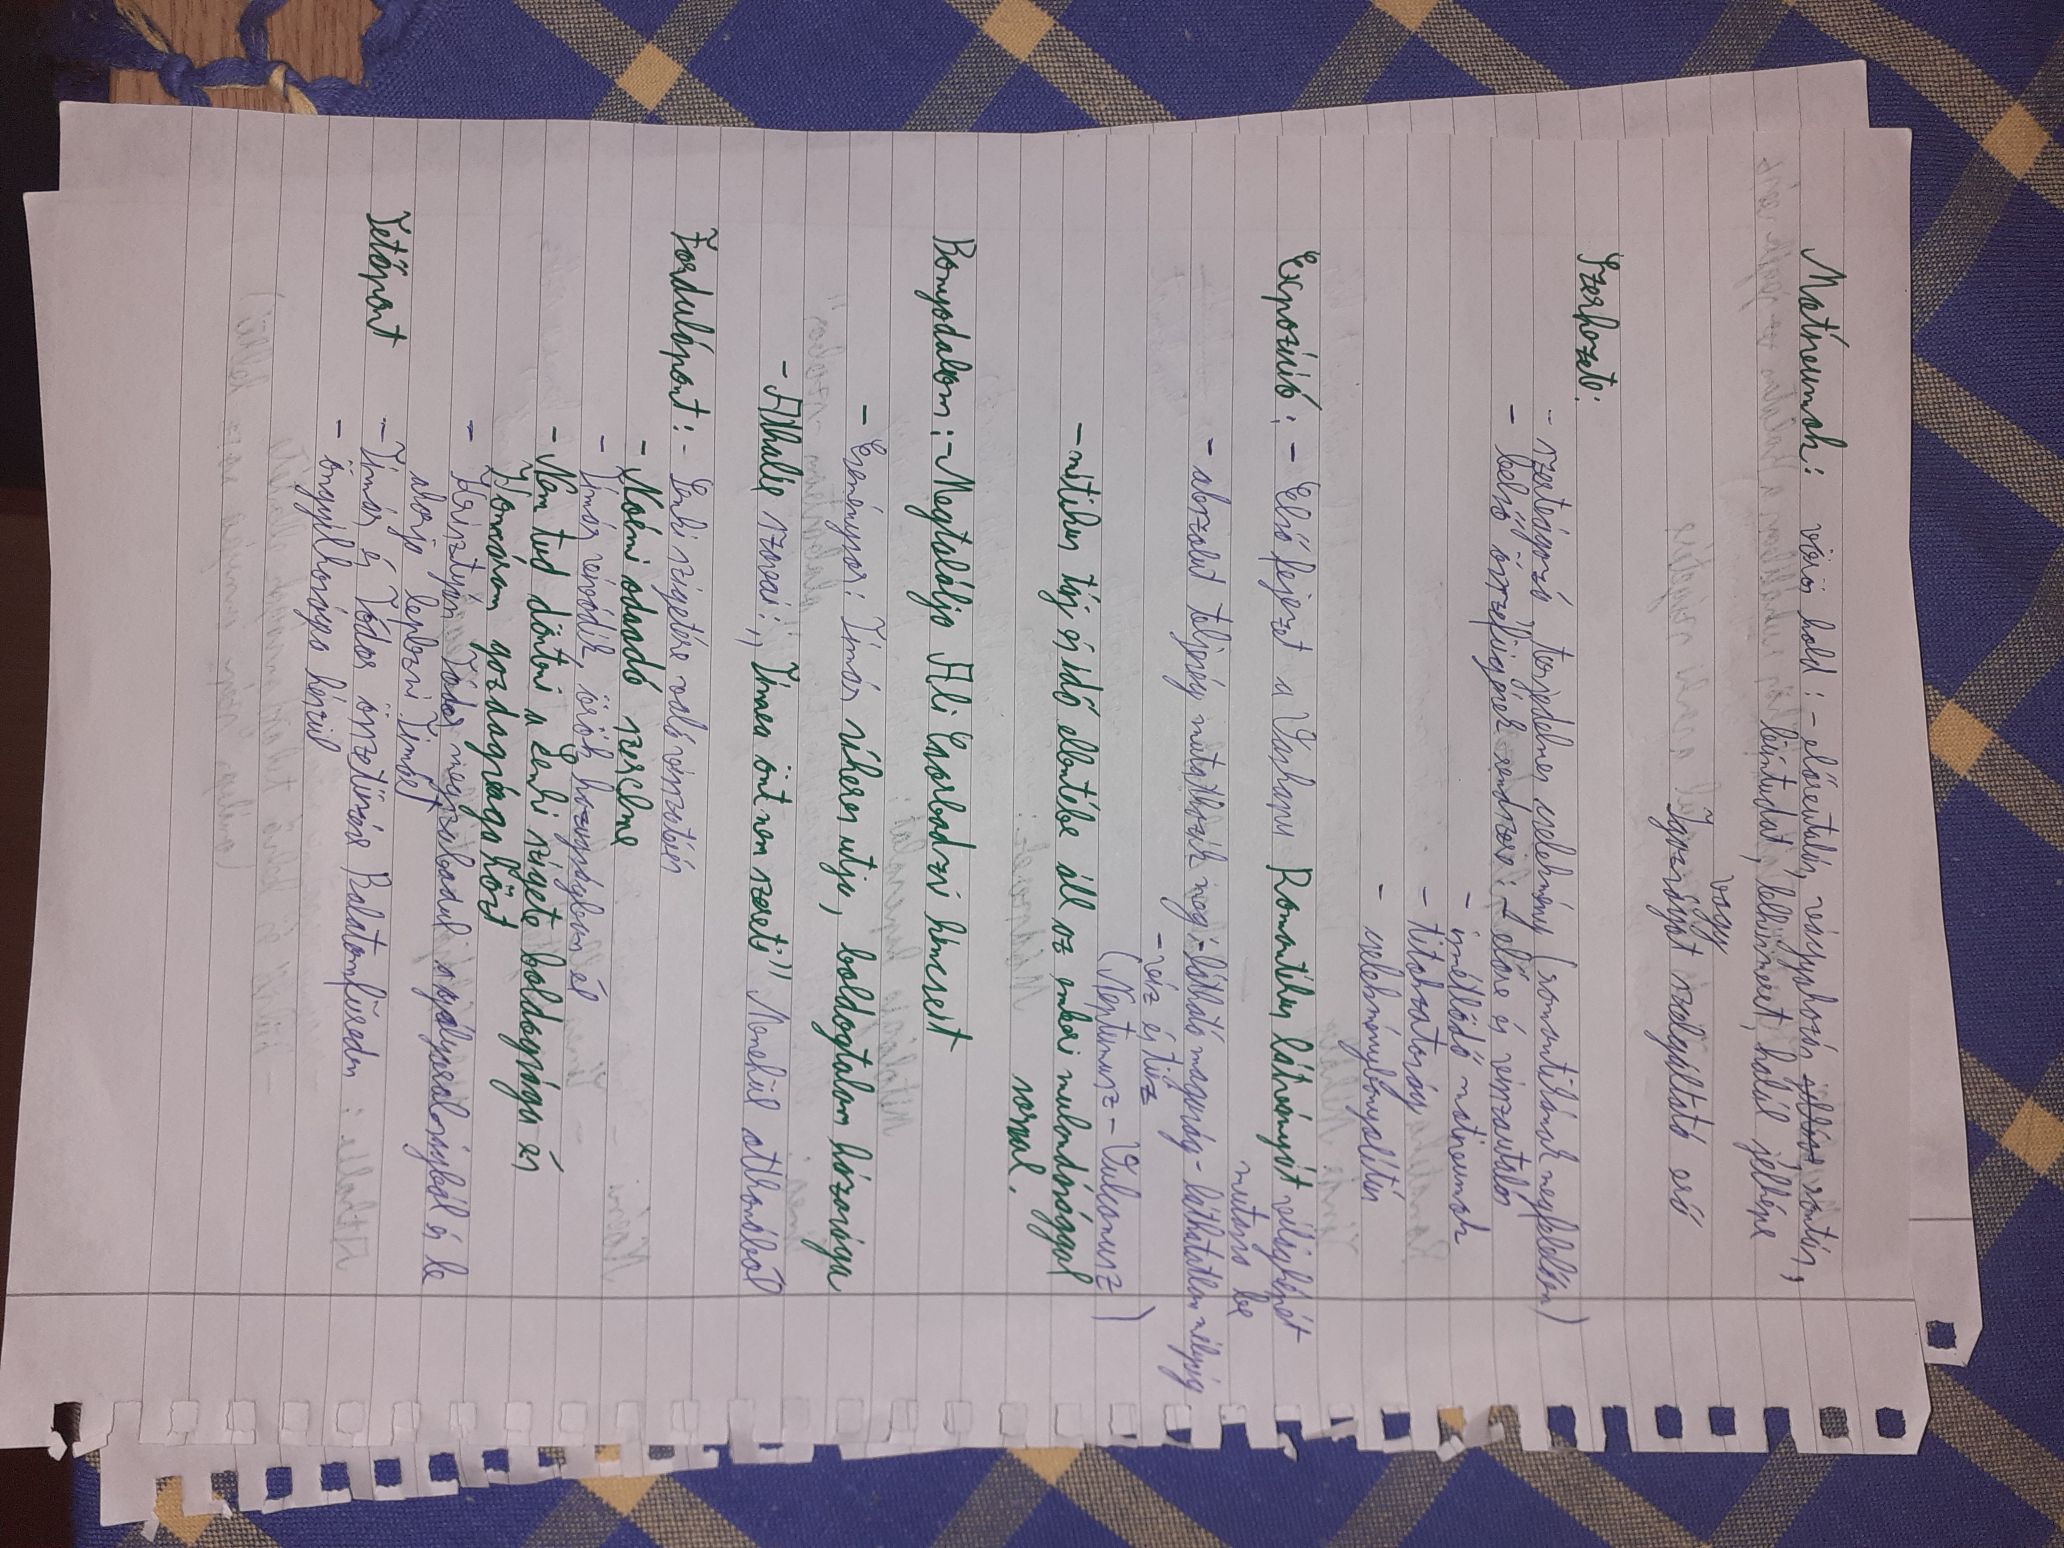 Motívumok: vörös hold: - előreutalás, vágyakozás, rontás,
bűntudat, lelkiismeret, halál jelképe
vagy
Igazságot szolgáltató erő
Szerkezete:
- szerteágazó, terjedelmes cselekmény (romantikának megfelelően)
- belső összefüggések rendszere: - előre és visszautalás
- ismétlődő motívumok
- titokzatosság
- cselekménybonyolítás
Expozíció: - Első fejezet a Vaskapu Romantikus látványát világképét
mutassa be
- abszolut teljeség mutatkozik meg: - látható magasság - láthatatlan mélység
- víz és tűz
(Neptunusz - Vulcanusz)
- mitikus táj és idő ellentébe áll az emberi mulandósággal
sorssal.
Bonyodalom: - Megtalálja Ali Csorbadzsi kincseit
- Eseménysor: Tímár sikeres utja, boldogtalan házasága
- Athalie szavai: „Tímea önt nem szereti" Menekül otthonából
Fordulópont: - Senki szigetére való visszatérés
- Noémi odaadó szerelme
- Tímár vívódik, örök hazugságban él
- Nem tud dönteni a Senki szigete boldogsága és
Komárom gazdagsága közt
- Krisztyán Tódor megszabadul a gályarabságból és le
akarja leplezni Tímárt
Tetőpont - Tímár és Tódor összetűzése Balatonfüreden
- öngyilkosságra készül